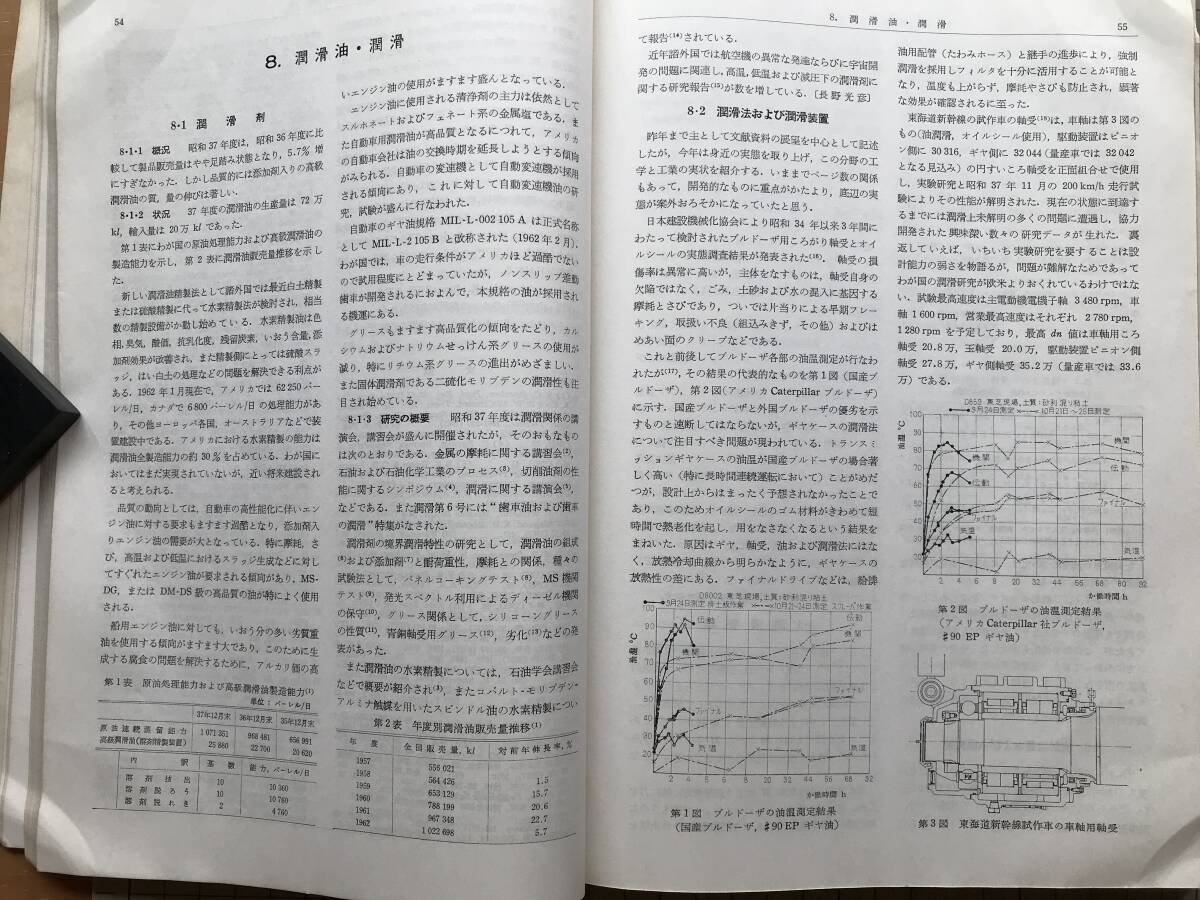 54
8. 潤滑油・潤滑
8・1 潤滑剤
8・1・1 概況 昭和37年度は，昭和36年度に比
較して製品販売量はやや足踏み状態となり，5.7% 増
にすぎなかった．しかし品質的には添加剤入りの高級
潤滑油の質，量の伸びは著しい．
8・1・2 状況 37年度の潤滑油の生産量は 72万
kl，輸入量は 20万 kl であった．
第1表にわが国の原油処理能力および高級潤滑油の
製造能力を示し，第2表に潤滑油販売量推移を示し
た．
新しい潤滑油精製法として諸外国では最近白土精製
または硫酸精製に代って水素精製法が検討され，相当
数の精製設備がか動し始めている．水素精製油は色
相，臭気，酸価，抗乳化度，残留炭素，いおう含量，添
加剤効果が改善され，また精製側にとっては硫酸スラ
ッジ，はい白土の処理などの問題を解決できる利点が
ある．1962年1月現在で，アメリカでは 62 250 バー
レル/日，カナダで 6 800 バーレル/日の処理能力があ
り，その他ヨーロッパ各国，オーストラリアなどで装
置建設中である．アメリカにおける水素精製の能力は
潤滑油全製造能力の約30%を占めている．わが国に
おいてはまだ実現されていないが，近い将来建設され
ると考えられる．
品質の動向としては，自動車の高性能化に伴いエン
ジン油に対する要求もますます過酷となり，添加剤入
りエンジン油の需要が大となっている．特に摩耗，さ
び，高温および低温におけるスラッジ生成などに対し
てすぐれたエンジン油が要求される傾向があり，MS-
DG，または DM-DS 級の高品質の油が特によく使用
される．
船用エンジン油に対しても，いおう分の多い劣質重
油を使用する傾向がますます大であり，このために生
成する腐食の問題を解決するために，アルカリ価の高
第1表 原油処理能力および高級潤滑油製造能力(1)
単位：バーレル/日
37年12月末 36年12月末 35年12月末
原油連続蒸留能力 1 071 351 968 461 656 991
高級潤滑油(溶剤精製装置) 25 880 22 700 20 620
内訳 基数 能力，バーレル/日
溶剤抽出 10 10 360
溶剤脱ろう 10 10 760
溶剤脱れき 2 4 760
いエンジン油の使用がますます盛んとなっている．
エンジン油に使用される清浄剤の主力は依然として
スルホネートおよびフェネート系の金属塩である．ま
た自動車用潤滑油が高品質となるにつれて，アメリカ
の自動車会社は油の交換時期を延長しようとする傾向
がみられる．自動車の変速機として自動変速機が採用
される傾向にあり，これに対して自動変速機油の研
究，試験が盛んに行なわれた．
自動車のギヤ油規格 MIL-L-002 105 A は正式名称
として MIL-L-2 105 B と改称された（1962年2月）．
わが国では，車の走行条件がアメリカほど過酷でない
ので試用程度にとどまっていたが，ノンスリップ差動
歯車が開発されるにおよんで，本規格の油が採用され
る機運にある．
グリースもますます高品質化の傾向をたどり，カル
シウムおよびナトリウムせっけん系グリースの使用が
減り，特にリチウム系グリースの進出がめざましい．
また固体潤滑剤である二硫化モリブデンの潤滑性も注
目され始めている．
8・1・3 研究の概要 昭和37年度は潤滑関係の講
演会，講習会が盛んに開催されたが，そのおもなもの
は次のとおりである．金属の摩耗に関する講習会(2)，
石油および石油化学工業のプロセス(3)，切削油剤の性
能に関するシンポジウム(4)，潤滑に関する講演会(5)，
などである．また潤滑第6号には“歯車油および歯車
の潤滑”特集がなされた．
潤滑剤の境界潤滑特性の研究として，潤滑油の組成
(6)および添加剤(7)と耐荷重性，摩耗との関係，種々の
試験法として，パネルコーキングテスト(8)，MS機関
テスト(9)，発光スペクトル利用によるディーゼル機関
の保守(10)，グリース関係として，シリコーングリース
の性質(11)，青銅軸受用グリース(12)，劣化(13)などの発
表があった．
また潤滑油の水素精製については，石油学会講習会
などで概要が紹介され(3)，またコバルト・モリブデン-
アルミナ触媒を用いたスピンドル油の水素精製につい
第2表 年度別潤滑油販売量推移(1)
年度 全国販売量，kl 対前年伸長率，%
1957 556 021
1958 564 426 1.5
1959 653 129 15.7
1960 788 199 20.6
1961 967 348 22.7
1962 1 022 698 5.7
8. 潤滑油・潤滑
55
て報告(14)されている．
近年諸外国では航空機の異常な発達ならびに宇宙開
発の問題に関連し，高温，低温および減圧下の潤滑剤に
関する研究報告(15)が数を増している．〔長野光彦〕
8・2 潤滑法および潤滑装置
昨年まで主として文献資料の展望を中心として記述
したが，今年は身近の実態を取り上げ，この分野の工
学と工業の実状を紹介する．いままでページ数の関係
もあって，開発的なものに重点がかたより，底辺の実
態が案外おろそかになっていたと思う．
日本建設機械化協会により昭和34年以来3年間に
わたって検討されたブルドーザ用ころがり軸受とオイ
ルシールの実態調査結果が発表された(16)．軸受の損
傷率は異常に高いが，主体をなすものは，軸受自身の
欠陥ではなく，ごみ，土砂および水の混入に基因する
摩耗とさびであり，ついでは片当りによる早期フレー
キング，取扱い不良（組込みきず，その他）およびは
めあい面のクリープなどである．
これと前後してブルドーザ各部の油温測定が行なわ
れたが(17)，その結果の代表的なものを第1図（国産ブ
ルドーザ），第2図（アメリカ Caterpillar ブルドーザ）
に示す．国産ブルドーザと外国ブルドーザの優劣を示
すものと速断してはならないが，ギヤケースの潤滑法
について注目すべき問題が現われている．トランスミ
ッションギヤケースの油温が国産ブルドーザの場合著
しく高い（特に長時間連続運転において）ことがめだ
つが，設計上からはまったく予想されなかったことで
あり，このためオイルシールのゴム材料がきわめて短
時間で熱老化を起し，用をなさなくなるという結果を
まねいた．原因はギヤ，軸受，油および潤滑法にはな
く，放熱冷却曲線から明らかなように，ギヤケースの
放熱性の差にある．ファイナルドライブなどは，給排
D8002 東芝現場，土質：砂利混り粘土
9月24日測定 排土板作業 10月21-24日測定 スクレーパ作業
油温 °C
90
80
70
60
50
40
30
20
伝動
機関
ファイナル
気温
伝動
機関
ファイナル
気温
2 4 6 8 20 32 44 56 68 80 92
か働時間 h
第1図 ブルドーザの油温測定結果
（国産ブルドーザ，#90 EP ギヤ油）
油用配管（たわみホース）と継手の進歩により，強制
潤滑を採用しフィルタを十分に活用することが可能と
なり，温度も上がらず，摩耗やさびも防止され，顕著
な効果が確認されるに至った．
東海道新幹線の試作車の軸受(18)は，車軸は第3図の
もの（油潤滑，オイルシール使用），駆動装置はピニオ
ン側に 30 316，ギヤ側に 32 044（量産車では 32 042
となる見込み）の円すいころ軸受を正面組合せで使用
し，実験研究と昭和37年11月の 200 km/h 走行試
験によりその性能が解明された．現在の状態に到達す
るまでには潤滑上未解明の多くの問題に遭遇し，協力
開発された興味深い数々の研究データが生れた．裏
返していえば，いちいち実験研究を要することは設
計能力の弱さを物語るが，問題が難解なためであって
わが国の潤滑研究が欧米よりおくれているわけではな
い．試験最高速度は主電動機電機子軸 3 480 rpm，車
軸 1 600 rpm，営業最高速度はそれぞれ 2 780 rpm，
1 280 rpm を予定しており，最高 dn 値は車軸用ころ
軸受 20.8万，玉軸受 20.0万，駆動装置ピニオン側
軸受 27.8万，ギヤ側軸受 35.2万（量産車では 33.6
万）である．
東芝現場，土質：砂利混り粘土
9月24日測定 10月21日～25日測定
油温 °C
100
90
80
70
60
50
40
30
20
機関
伝動
ファイナル
気温
機関
伝動
気温
0 2 4 6 8 20 32 44 56 68 80 92
か働時間 h
第2図 ブルドーザの油温測定結果
（アメリカ Caterpillar 社ブルドーザ，
#90 EP ギヤ油）
第3図 東海道新幹線試作車の車軸用軸受